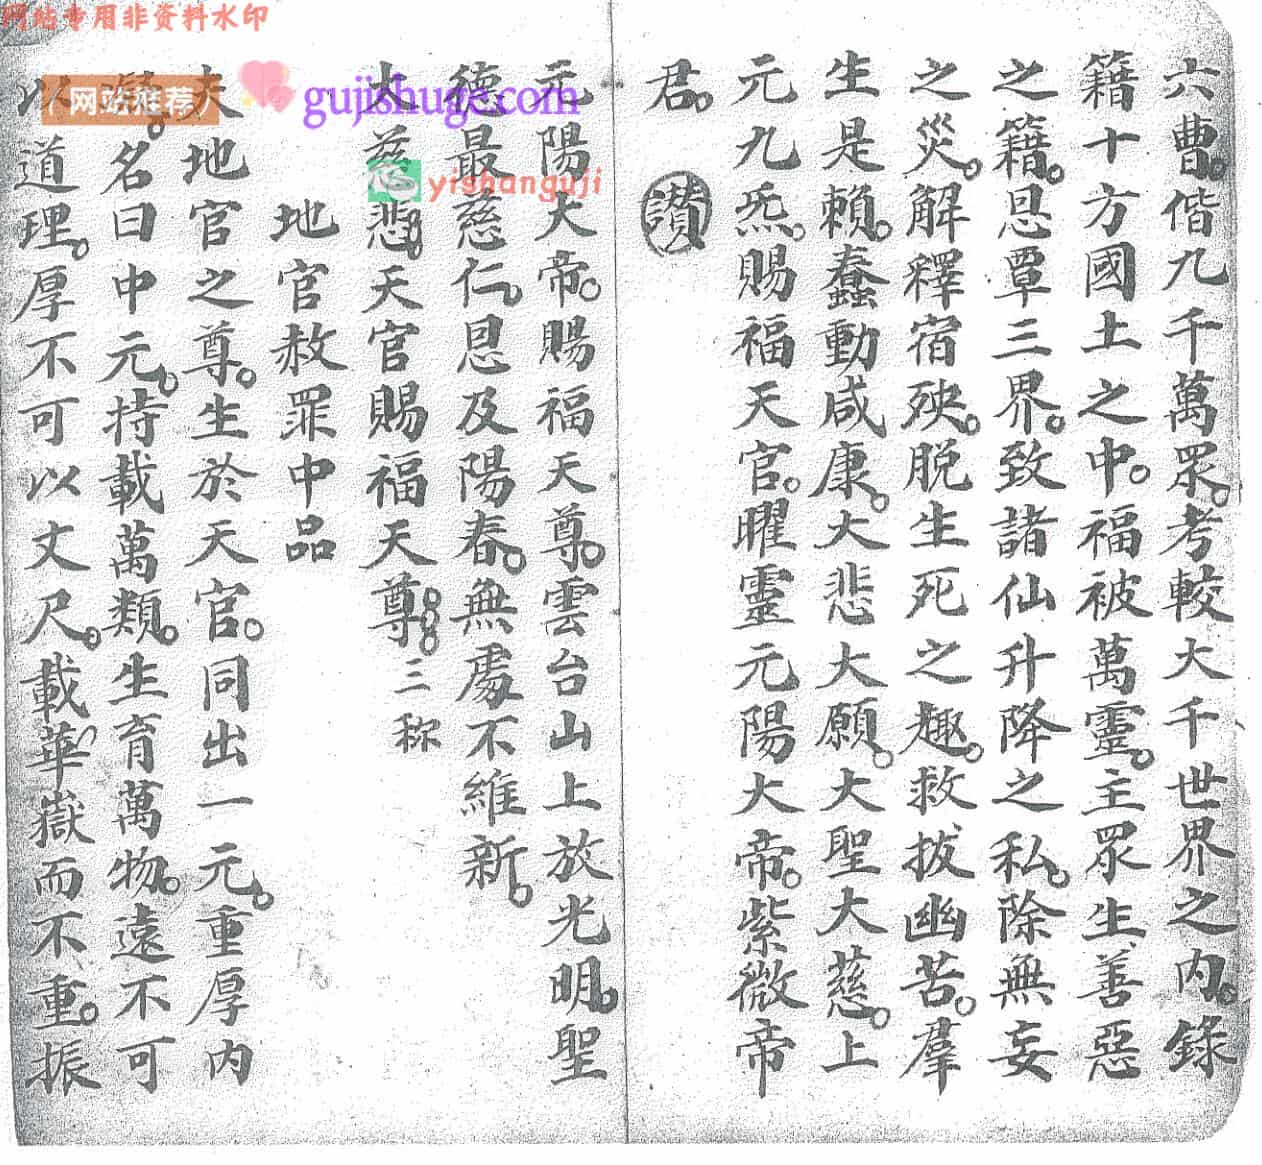 网站专用非资料水印
网站推荐
gujishuge.com
yishanguji
六曹。偕九千萬眾。考較大千世界之內。錄
籍十方國土之中。福被萬靈。主眾生善惡
之籍。恩覃三界。致諸仙升降之私。除無妄
之災。解釋宿殃。脱生死之趣。救拔幽苦。羣
生是賴。蠢動咸康。大悲大願。大聖大慈。上
元九炁。賜福天官。曜靈元陽大帝。紫微帝
君。 讃
元陽大帝。賜福天尊。雲台山上放光明。聖
德最慈仁。恩及陽春。無處不維新。
大慈悲。天官賜福天尊。三稱
地官赦罪中品
夫地官之尊。生於天官。同出一元。重厚内
名曰中元。持載萬類。生育萬物。遠不可
以道理。厚不可以丈尺。載華嶽而不重。振